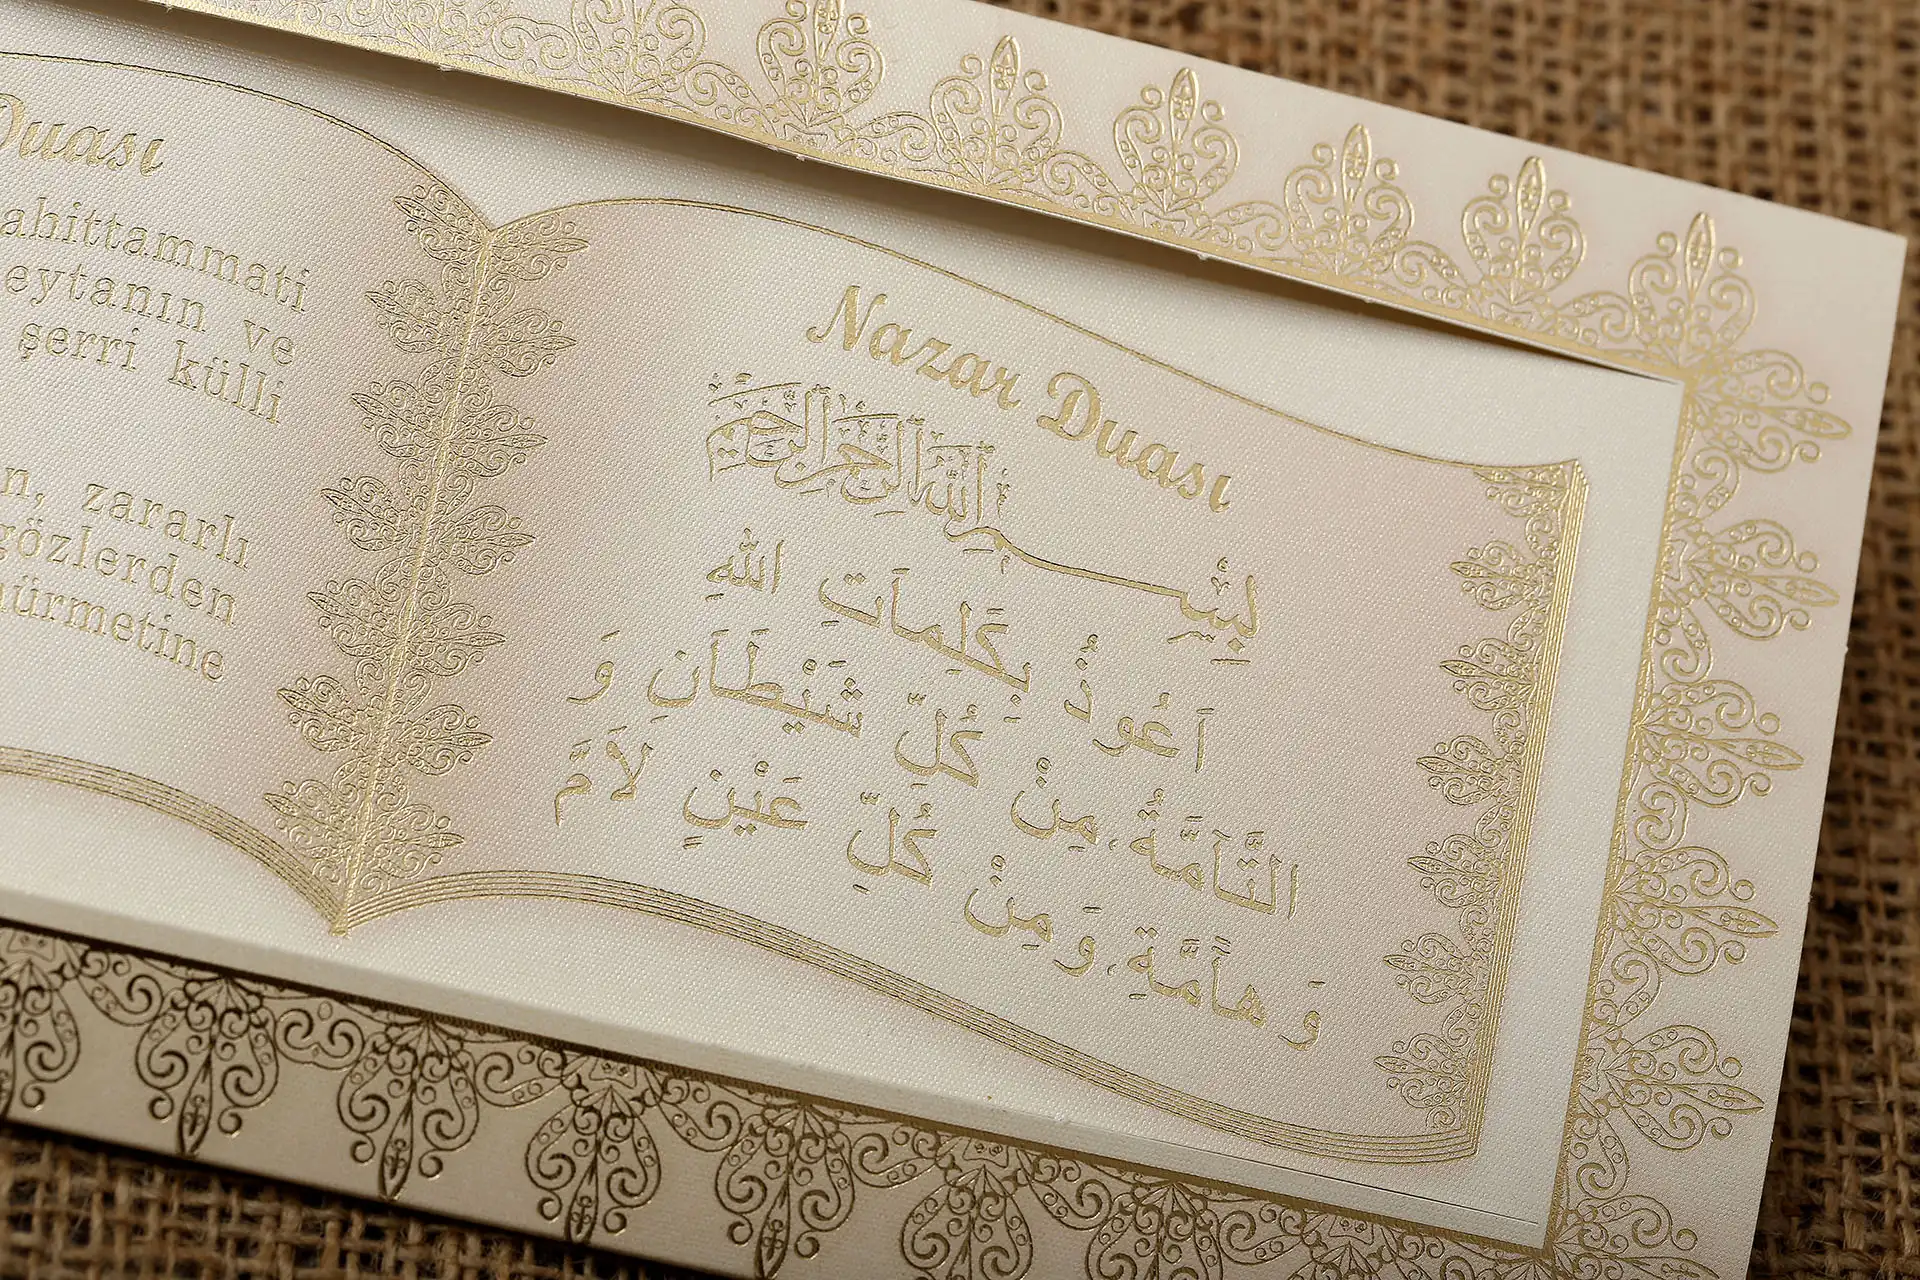 Duası
ahittammati
eytanın ve
şerri külli
n, zararlı
gözlerden
hürmetine
Nazar Duası
بِسْمِ اللهِ الرَّحْمٰنِ الرَّحِيمِ
اَعُوذُ بِكَلِمَاتِ اللهِ
التَّآمَّةُ، مِنْ كُلِّ شَيْطَانِ وَ
وَ هاَمَّةِ، وَمِنْ كُلِّ عَيْنٍ لاَمَّ